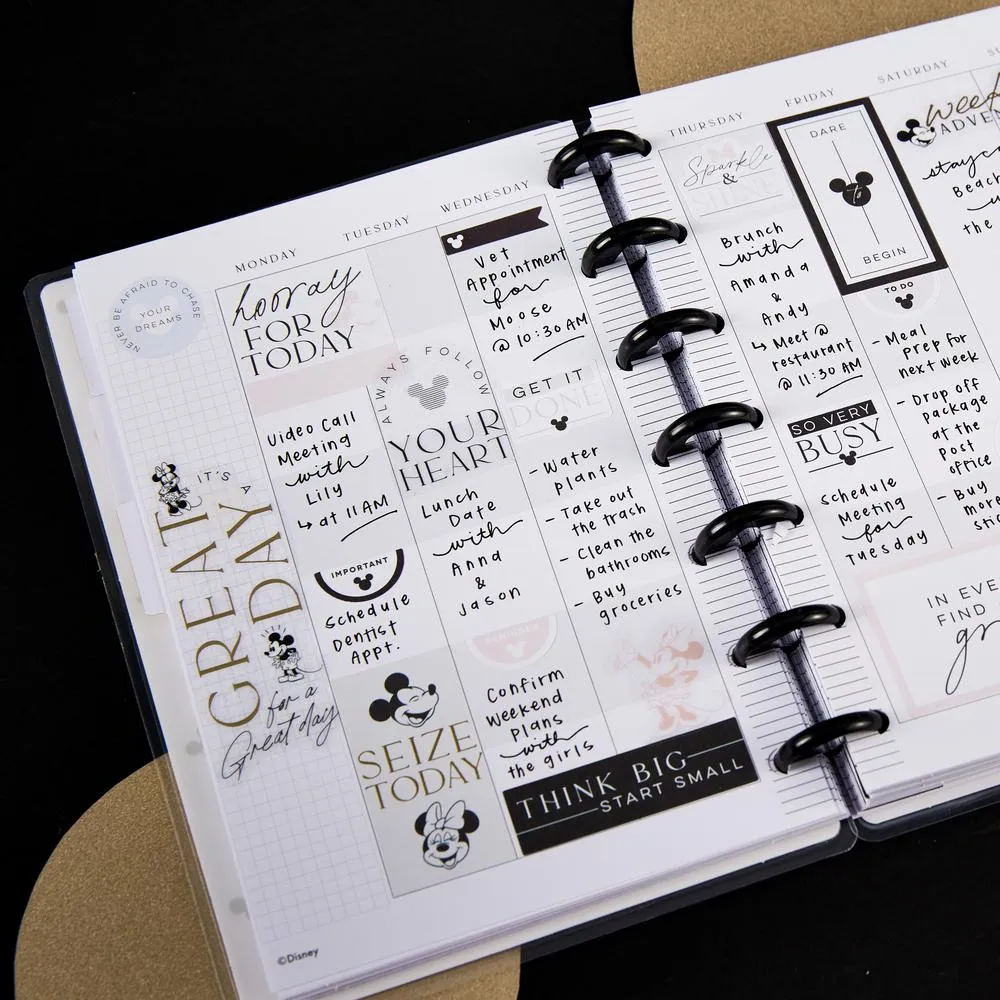 NEVER BE AFRAID TO CHASE
YOUR
DREAMS
IT'S A
GREAT
DAY
for a
Great day
MONDAY
hooray
FOR
TODAY
Video Call
Meeting
with
Lily
↳ at 11 AM
IMPORTANT
Schedule
Dentist
Appt.
SEIZE
TODAY
TUESDAY
ALWAYS FOLLOW
YOUR
HEART
Lunch
Date
with
Anna
&
Jason
REMINDER
Confirm
Weekend
Plans
with
the girls
WEDNESDAY
Vet
Appointment
for
Moose
@ 10:30 AM
GET IT
DONE
- Water
plants
- Take out
the trash
- Clean the
bathrooms
- Buy
groceries
THINK BIG
START SMALL
©Disney
THURSDAY
Sparkle
&
SHINE
Brunch
with
Amanda
&
Andy
↳ Meet @
restaurant
@ 11:30 AM
SO VERY
BUSY
Schedule
Meeting
for
Tuesday
FRIDAY
DARE
to
BEGIN
TO DO
- Meal
prep for
next week
- Drop off
package
at the
post
office
- Buy
more
SATURDAY
the
IN EVE
FIND
gr